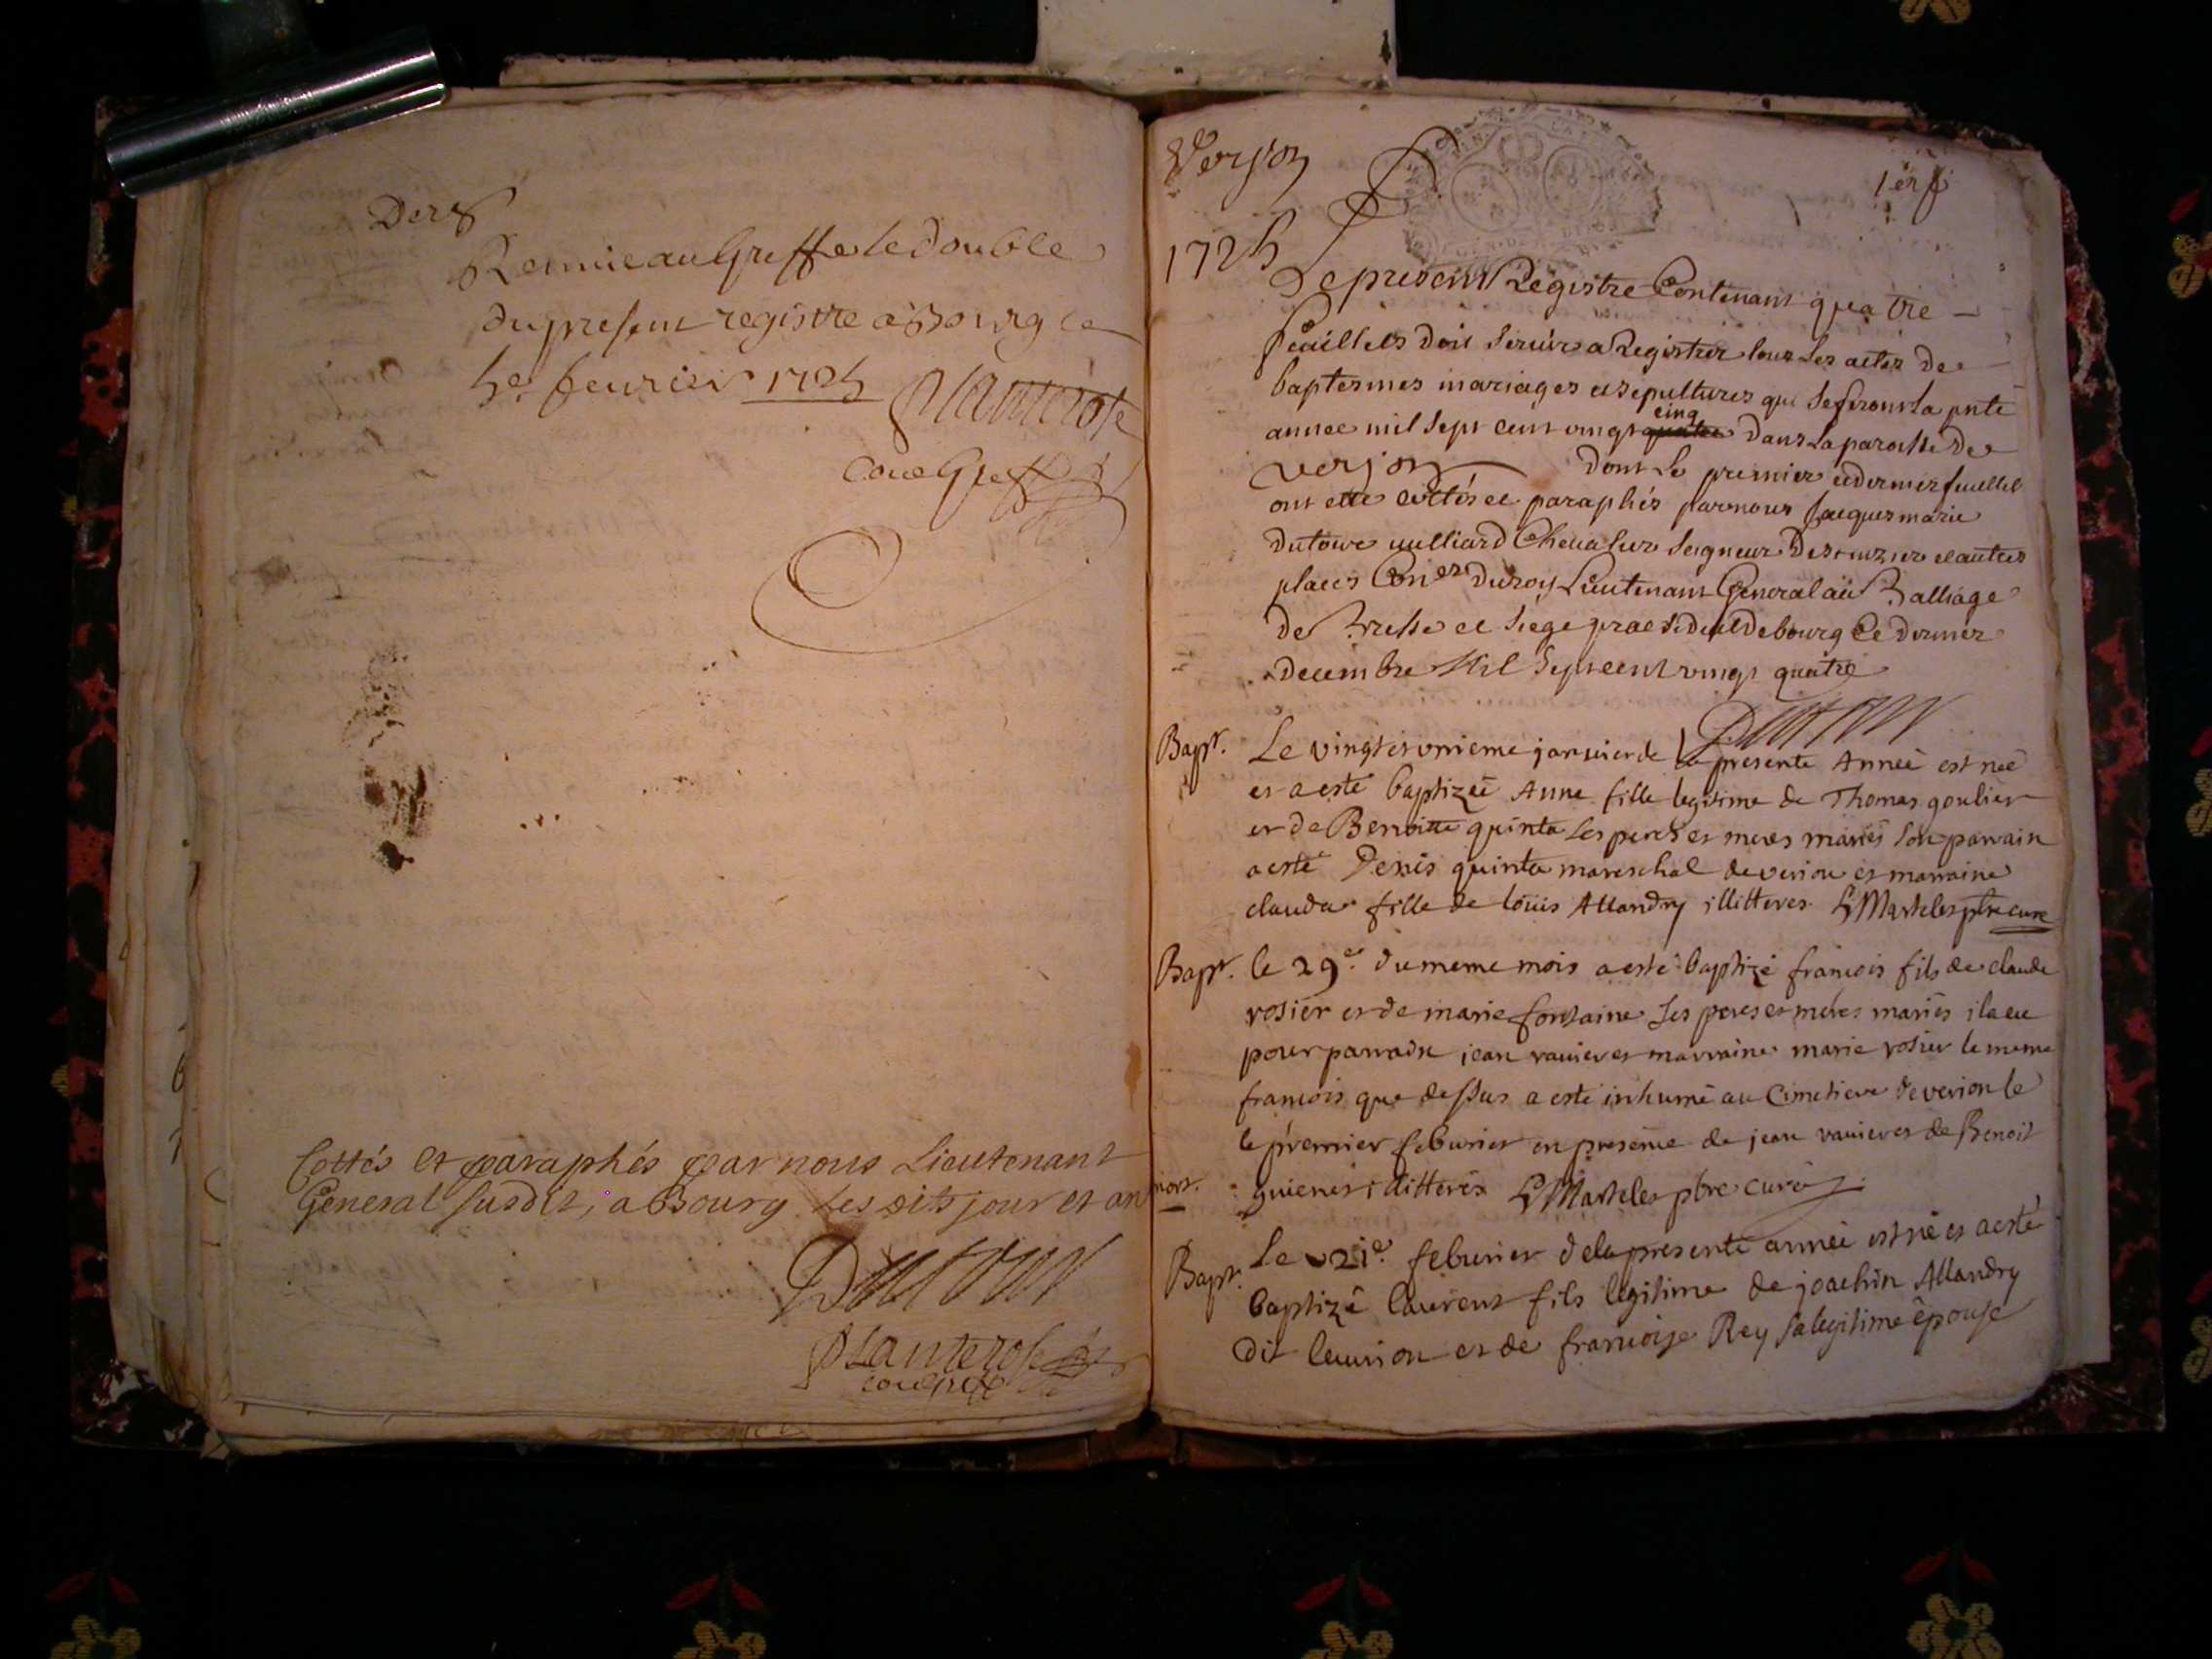 Der f
Remis au Greffe le double
du present registre a Bourg le
5e feurier 1725 Planterose
Coue Greff
Cottés et paraphés par nous Lieutenant
General susdit, a Bourg les dits jour et an
Dutour
Planterose
coue greff
Verjon
1er f
1725
Le present Registre Contenant quatre
feuillets doit seruir a Registrer tous les actes de
baptesmes mariages et sepultures qui se feront la pnte
annee mil sept cent vingt quatre cinq dans la paroisse de
verjon dont le premier et dernier feuillet
ont etté cottés et paraphés par nous Jacques marie
dutour vulliard Cheualier Seigneur De et autres
places Coner du roy Lieutenant General au Balliage
de Bresse et siege praesidial de bourg Ce dernier
decembre Mil sept cent vingt quatre
Dutour
Bapt. Le vingt et unieme januier de la presente Année est née
et a esté baptizée Anne fille legitime de Thomas goulier
et de Benoitte quinta ses peres et meres mariés son parrain
a esté Denis quinta mareschal de verion et marraine
clauda fille de louis Allandry illitteres Martelet ptre curé
Bapt. le 29e. du meme mois a esté baptizé francois fils de claude
rosier et de marie fontaine ses peres et meres mariés il a eu
pour parrain jean rauier et marraine marie rosier le meme
francois que dessus a esté inhumé au Cimetiere de verion le
le premier feburier en presence de jean rauier et de Benoit
mort. illitteres Martelet ptre curé
Bapt. Le 21e. feburier de la presente année est né et a esté
baptizé laurent fils legitime de joachin Allandry
dit et de francoise Rey sa legitime épouse